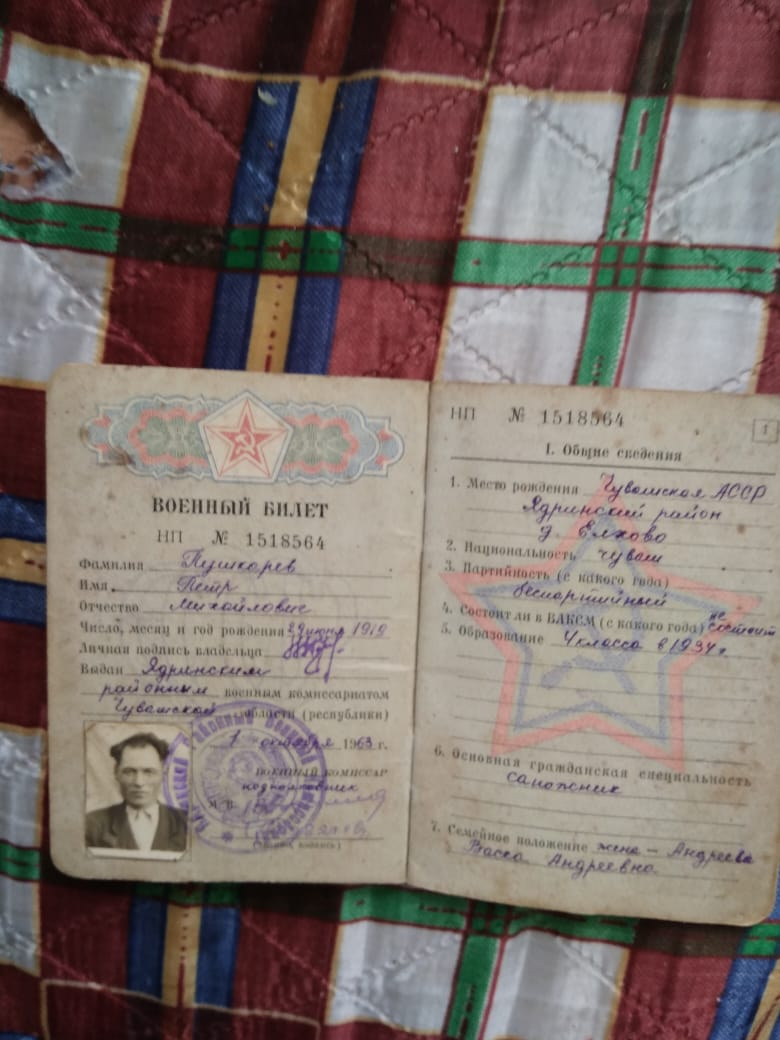 ВОЕННЫЙ БИЛЕТ
НП № 1518564
Фамилия Пушкарев
Имя Петр
Отчество Михайлович
Число, месяц и год рождения 29 июня 1919
Личная подпись владельца
Выдан Ядринским
районным военным комиссариатом
Чувашской области (республики)
1 октября 1963 г.
ВОЕННЫЙ КОМИССАР
подполковник
М. П.
НП № 1518564
1
I. Общие сведения
1. Место рождения Чувашская АССР
Ядринский район
д. Елхово
2. Национальность чуваш
3. Партийность (с какого года)
беспартийный
4. Состоит ли в ВЛКСМ (с какого года) не состоит
5. Образование 4 класса в 1934 г.
6. Основная гражданская специальность
сапожник
7. Семейное положение жена – Андреева
Васса Андреевна